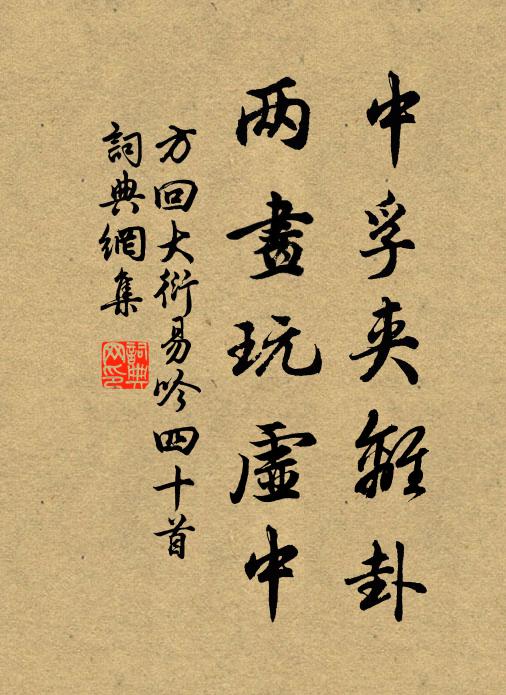 中孚夹離卦
两畫玩虛中
方回大衍易吟四十首
詞典網集
詞典网印